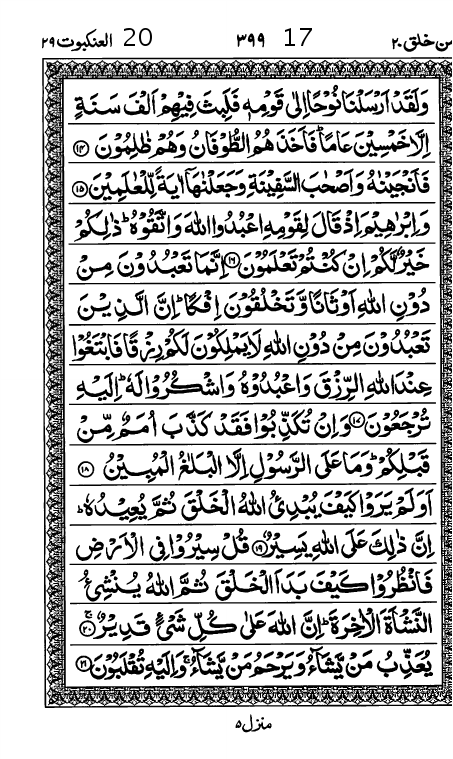 من خلق ٢٠ 17 ٣٩٩ 20 العنكبوت ٢٩
وَلَقَدْ اَرْسَلْنَا نُوْحًا اِلٰى قَوْمِهٖ فَلَبِثَ فِيْهِمْ اَلْفَ سَنَةٍ
اِلَّا خَمْسِيْنَ عَامًا ؕ فَاَخَذَهُمُ الطُّوْفَانُ وَهُمْ ظٰلِمُوْنَ ﴿۱۴﴾
فَاَنْجَيْنٰهُ وَاَصْحٰبَ السَّفِيْنَةِ وَجَعَلْنٰهَاۤ اٰيَةً لِّلْعٰلَمِيْنَ ﴿۱۵﴾
وَاِبْرٰهِيْمَ اِذْ قَالَ لِقَوْمِهِ اعْبُدُوا اللّٰهَ وَاتَّقُوْهُ ؕ ذٰلِكُمْ
خَيْرٌ لَّكُمْ اِنْ كُنْتُمْ تَعْلَمُوْنَ ﴿۱۶﴾ اِنَّمَا تَعْبُدُوْنَ مِنْ
دُوْنِ اللّٰهِ اَوْثَانًا وَّتَخْلُقُوْنَ اِفْكًا ؕ اِنَّ الَّذِيْنَ
تَعْبُدُوْنَ مِنْ دُوْنِ اللّٰهِ لَا يَمْلِكُوْنَ لَكُمْ رِزْقًا فَابْتَغُوْا
عِنْدَ اللّٰهِ الرِّزْقَ وَاعْبُدُوْهُ وَاشْكُرُوْا لَهٗ ؕ اِلَيْهِ
تُرْجَعُوْنَ ﴿۱۷﴾ وَاِنْ تُكَذِّبُوْا فَقَدْ كَذَّبَ اُمَمٌ مِّنْ
قَبْلِكُمْ ؕ وَمَا عَلَى الرَّسُوْلِ اِلَّا الْبَلٰغُ الْمُبِيْنُ ﴿۱۸﴾
اَوَلَمْ يَرَوْا كَيْفَ يُبْدِئُ اللّٰهُ الْخَلْقَ ثُمَّ يُعِيْدُهٗ ؕ
اِنَّ ذٰلِكَ عَلَى اللّٰهِ يَسِيْرٌ ﴿۱۹﴾ قُلْ سِيْرُوْا فِى الْاَرْضِ
فَانْظُرُوْا كَيْفَ بَدَاَ الْخَلْقَ ثُمَّ اللّٰهُ يُنْشِئُ
النَّشْاَةَ الْاٰخِرَةَ ؕ اِنَّ اللّٰهَ عَلٰى كُلِّ شَىْءٍ قَدِيْرٌ ۚ ﴿۲۰﴾
يُعَذِّبُ مَنْ يَّشَآءُ وَيَرْحَمُ مَنْ يَّشَآءُ ۚ وَاِلَيْهِ تُقْلَبُوْنَ ﴿۲۱﴾
منزل ٥